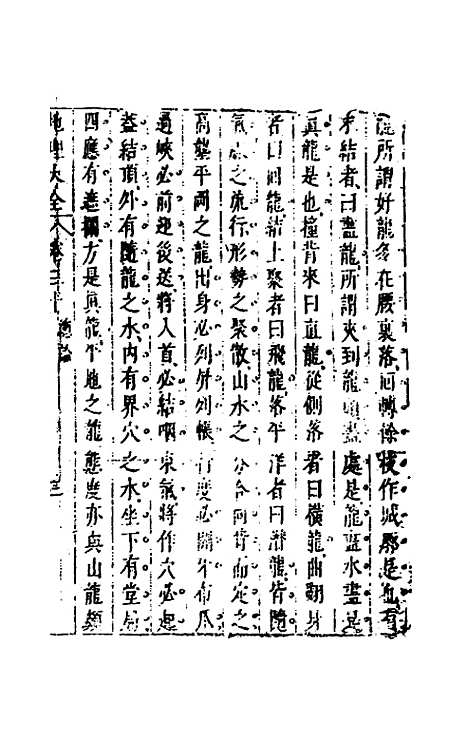 龍所謂好龍多在腰裏落回轉餘枝作城郭是也有
未結者曰盡龍所謂夾到龍頭盡處是龍盡水盡是
真龍是也撞背來曰直龍從側落者曰橫龍曲翻身
者曰回龍結上聚者曰飛龍落平洋者曰潛龍皆隨
氣之流行形勢之聚散山水之分合向背而定之
高壟平岡之龍出身必列屏列帳行度必開牙布爪
過峽必前迎後送將入首必結咽束氣將作穴必起
葢結頂外有隨龍之水內有界穴之水坐下有堂局
四應有遮攔方是真龍平地之龍態度亦與山龍類
地理大全 卷